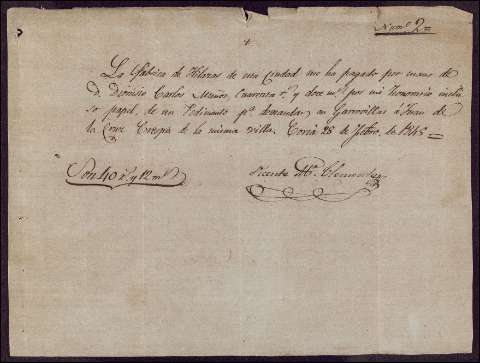 Num.º 2..
+
La Fabrica de Hilazas de esta Ciudad me ha pagado por mano de
D. Dionisio Carlos Muñoz, cuarenta r.s y doce m.s por mi honorario inclu
so papel, de un Pedimento p.a demandar en Garrovillas á Juan de
la Cruz Crespo de la misma villa. Coria 28 de de 1845 =
Son 40 r.s y 12 m.s
Vicente M.a Clemente